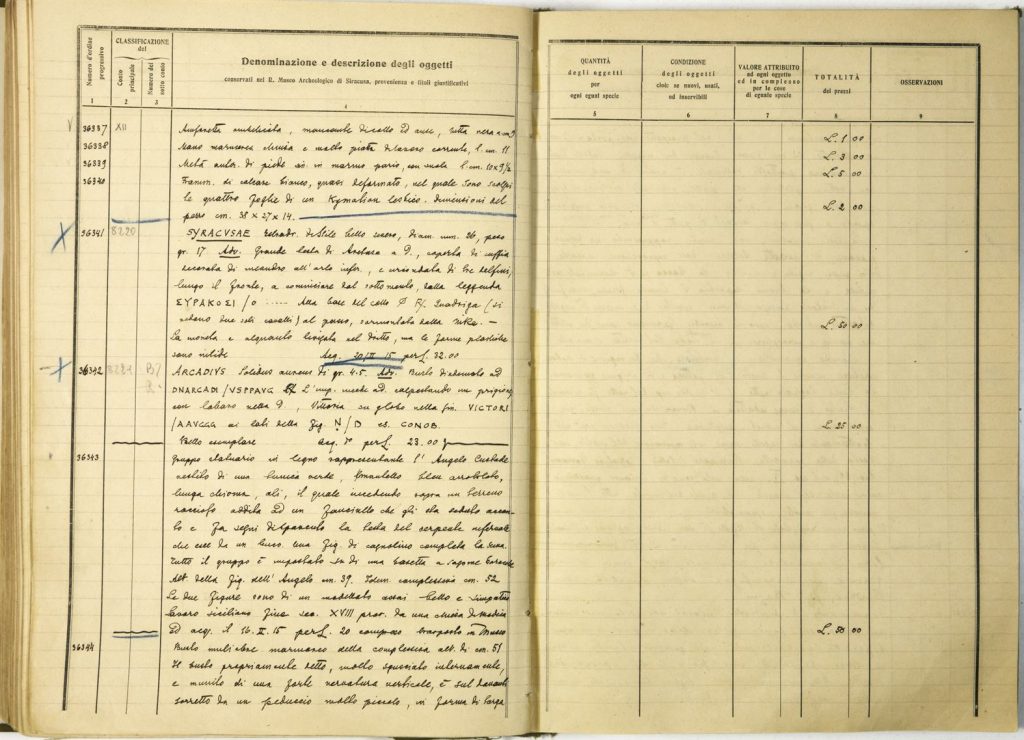 Numero d'ordine progressivo
CLASSIFICAZIONE del
Conto principale
Numero del sotto conto
Denominazione e descrizione degli oggetti
conservati nel R. Museo Archeologico di Siracusa, provenienza e titoli giustificativi
1 2 3 4
QUANTITÀ degli oggetti per ogni egual specie
CONDIZIONE degli oggetti cioè: se nuovi, usati, od inservibili
VALORE ATTRIBUITO ad ogni oggetto ed in complesso per le cose di eguale specie
TOTALITÀ dei prezzi
OSSERVAZIONI
5 6 7 8 9
36337 XII Anforetta, mancante di collo ed anse, tutta nera L. 1 00
36338 Mano marmorea chiusa e molto piatta di lavoro corrente, l. cm. 11 L. 3 00
36339 Metà anter. di piede in marmo pario, con suola l. cm. 10 x 9 1/2 L. 5 00
36340 Framm. di calcare bianco, quasi deformato, nel quale sono scolpi
te quattro foglie di un Kymation lesbico. Dimensioni del L. 2 00
pezzo cm. 38 x 27 x 14.
36341 8220 SYRACVSAE Tetradr. di stile bello severo, diam. mm. 26, peso
gr. 17 Adv. Grande testa di Aretusa a D., coperta di cuffia
decorata di meandro all'orlo infer., e circondata di tre delfini,
lungo il fronte, a cominciare dal sottomento, dalla leggenda
ΣΥΡΑΚΟΣΙ/Ο ..... Alla base del collo Quadriga (si
vedono due soli cavalli) al passo, sormontata dalla Nike. — L. 50 00
La moneta è alquanto levigata nel dritto, ma le forme plastiche
sono nitide Acq. 20/II 15 per L. 32.00
36342 8221 ARCADIVS Solidus aureus di gr. 4.5. Adv. Busto diademato ad
DNARCADI/VSPPAVG L'imp. in piedi ad. calpestando un prigione
con labaro nella D., Vittoria su globo nella sin. VICTORI
/AAVGGG ai lati della fig. N/D es. CONOB. L. 25 00
Bello esemplare acq. per L. 23.00
36343 Gruppo statuario in legno rappresentante l'Angelo Custode
vestito di una tunica verde, mantello bleu arrotolato,
lunga chioma, ali, il quale incedendo sopra un terreno
roccioso addita ad un fanciullo che gli sta seduto accan
to e fa segni di spavento la testa del serpente infernale
che esce da un buco. Una fig. di cagnolino completa la scena.
Tutto il gruppo è impostato su di una basetta a sagome
Alt. della fig. dell'Angelo cm. 39. complessiva cm. 52
Le due figure sono di un modellato assai bello e simpatico
lavoro siciliano fine sec. XVIII prov. da una chiesa di Modica
Ed acq. il 16. II. 15 per L. 20 compreso trasporto in Museo L. 50 00
36344 Busto muliebre marmoreo della complessiva alt. di cm. 51
Il busto propriamente detto, molto sgusciato internamente,
e munito di una forte nervatura verticale, è sul davanti
sorretto da un peduccio molto piccolo, in forma di targa